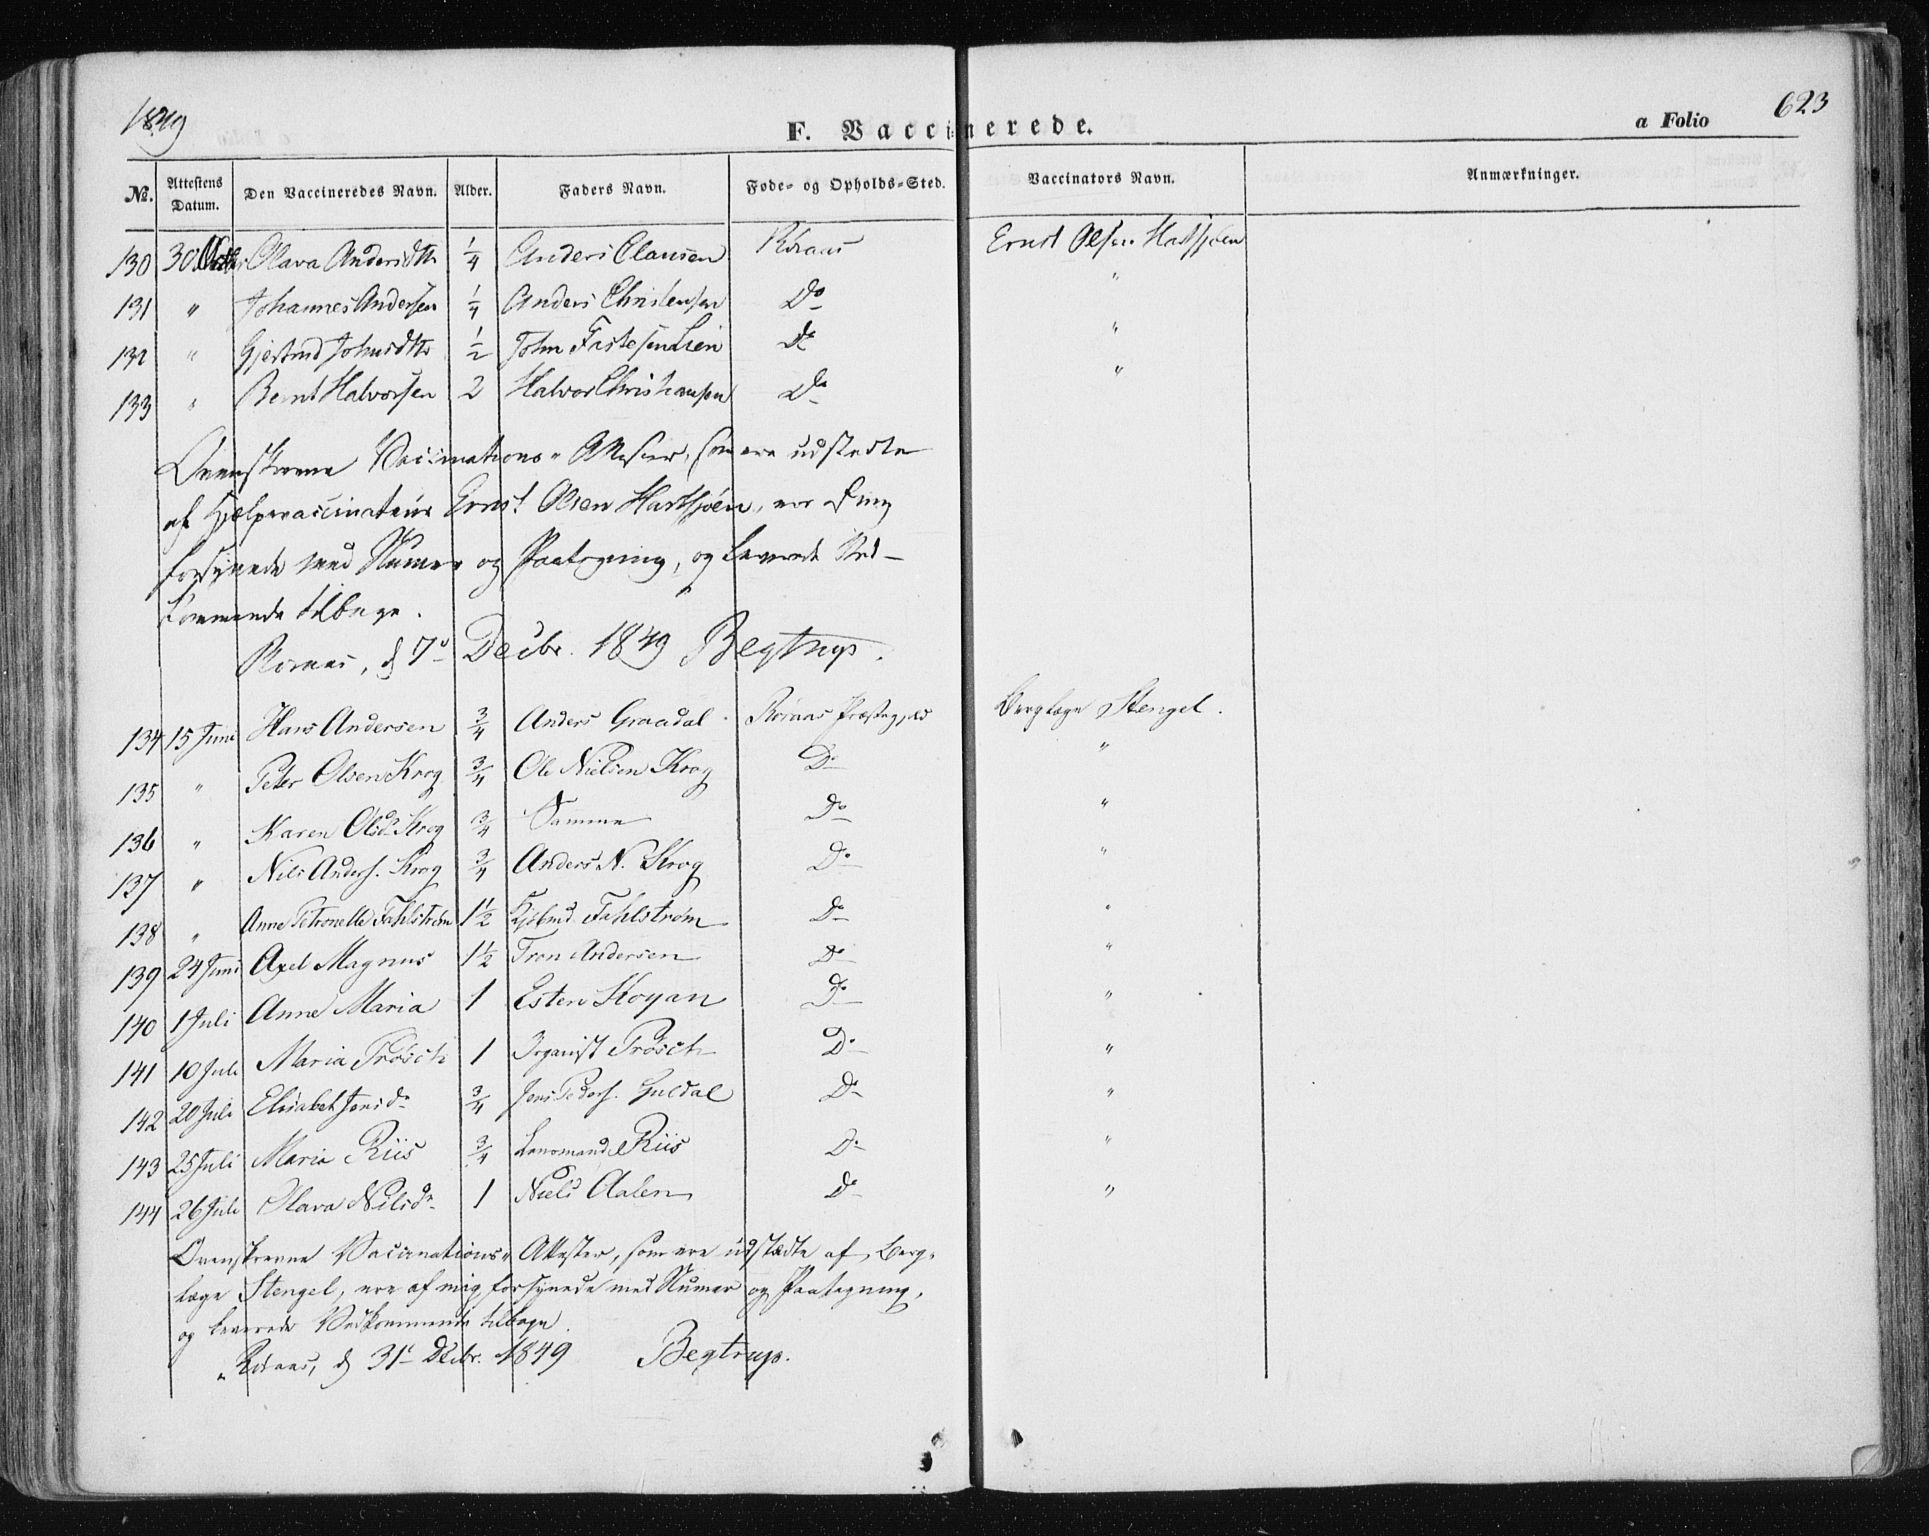 1849
F. Vaccinerede.
a Folio 623
No. Attestens Datum. Den Vaccineredes Navn. Alder. Faders Navn. Føde- og Opholds-Sted. Vaccinators Navn. Anmærkninger.
130 30 Olava Andersdtr 1/4 Anders Clausen Röraas Ernst Olsen Hartsjöen
131 " Johannes Andersen 1/4 Anders Christensen Do "
132 " Gjertrud Johnsdtr 1/2 John Fastesen Lien Do "
133 " Bernt Halvorsen 2 Halvor Christiansen Do "
Ovenskrevne Vaccinations-Attester, som ere udstedte
af Hjælpevaccinateur Ernst Olsen Hartsjöen, ere af mig
forsynede med Numer og Paategning, og leverede Ved-
kommende tilbage.
Röraas, d 7de Decbr. 1849 Begtrup.
134 15 Juni Hans Andersen 3/4 Anders Graadal Röraas Præstegjeld Berglæge Stengel.
135 " Peter Olsen Krog 3/4 Ole Nielsen Krog Do "
136 " Karen Olsdr Krog 3/4 Samme Do "
137 " Nils Anders. Krog 3/4 Anders N. Krog Do "
138 " Anne Petronelle Fahlström 1 1/2 Fahlström Do "
139 24 Juni Axel Magnus 1 1/2 Tron Andersen Do "
140 1 Juli Anne Maria 1 Esten Skogan Do "
141 10 Juli Maria Trösch 1 Organist Trösch Do "
142 20 Juli Elisabet Jensdr 3/4 Jens Peders. Guldal Do "
143 25 Juli Maria Riis 3/4 Lensmand Riis Do "
144 26 Juli Olava Nilsdr 1 Niels Aalen Do "
Ovenskrevne Vaccinations-Attester, som ere udstædte af Berg-
læge Stengel, ere af mig forsynede med Numer og Paategning,
og leverede Vedkommende tilbage.
Röraas, d 31te Decbr. 1849 Begtrup.